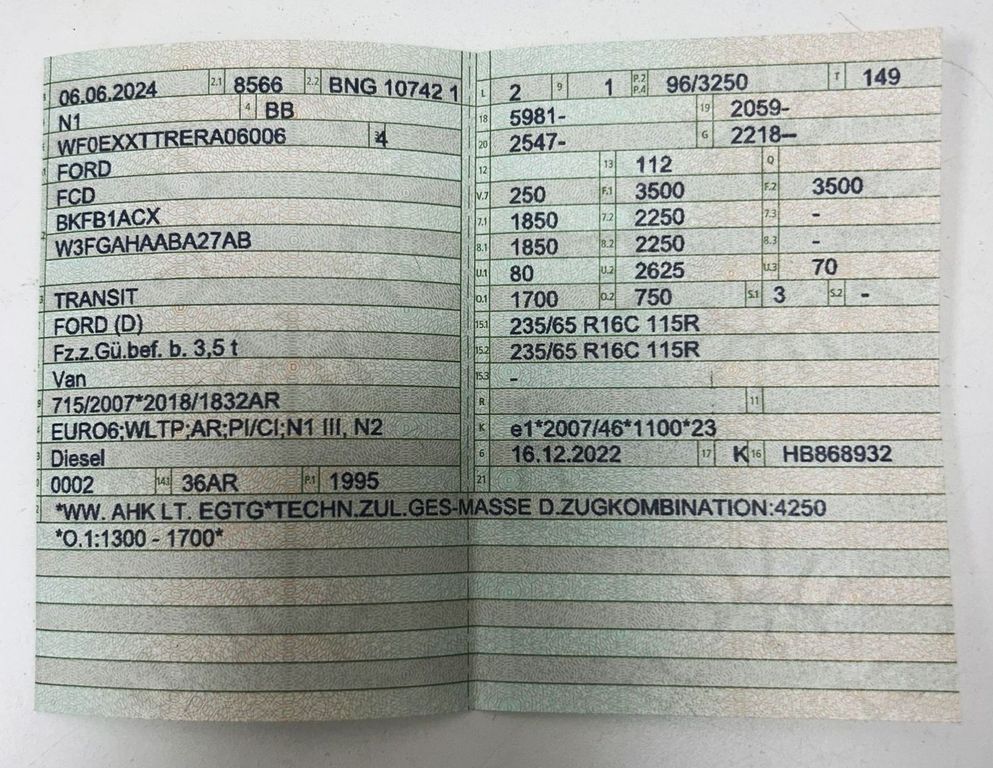 06.06.2024 2.1 8566 2.2 BNG 10742 1
N1 4 BB
WF0EXXTTRERA06006 3 4
FORD
FCD
BKFB1ACX
W3FGAHAABA27AB
TRANSIT
FORD (D)
Fz.z.Gü.bef. b. 3,5 t
Van
715/2007*2018/1832AR
EURO6;WLTP;AR;PI/CI;N1 III, N2
Diesel
0002 14.1 36AR P.1 1995
L 2 9 1 P.2 P.4 96/3250 T 149
18 5981- 19 2059-
20 2547- G 2218--
12 13 112 Q
V.7 250 F.1 3500 F.2 3500
7.1 1850 7.2 2250 7.3 -
8.1 1850 8.2 2250 8.3 -
U.1 80 U.2 2625 U.3 70
O.1 1700 O.2 750 S.1 3 S.2 -
15.1 235/65 R16C 115R
15.2 235/65 R16C 115R
15.3 -
R 11
K e1*2007/46*1100*23
6 16.12.2022 17 K 16 HB868932
21
*WW. AHK LT. EGTG*TECHN.ZUL.GES-MASSE D.ZUGKOMBINATION:4250
*O.1:1300 - 1700*